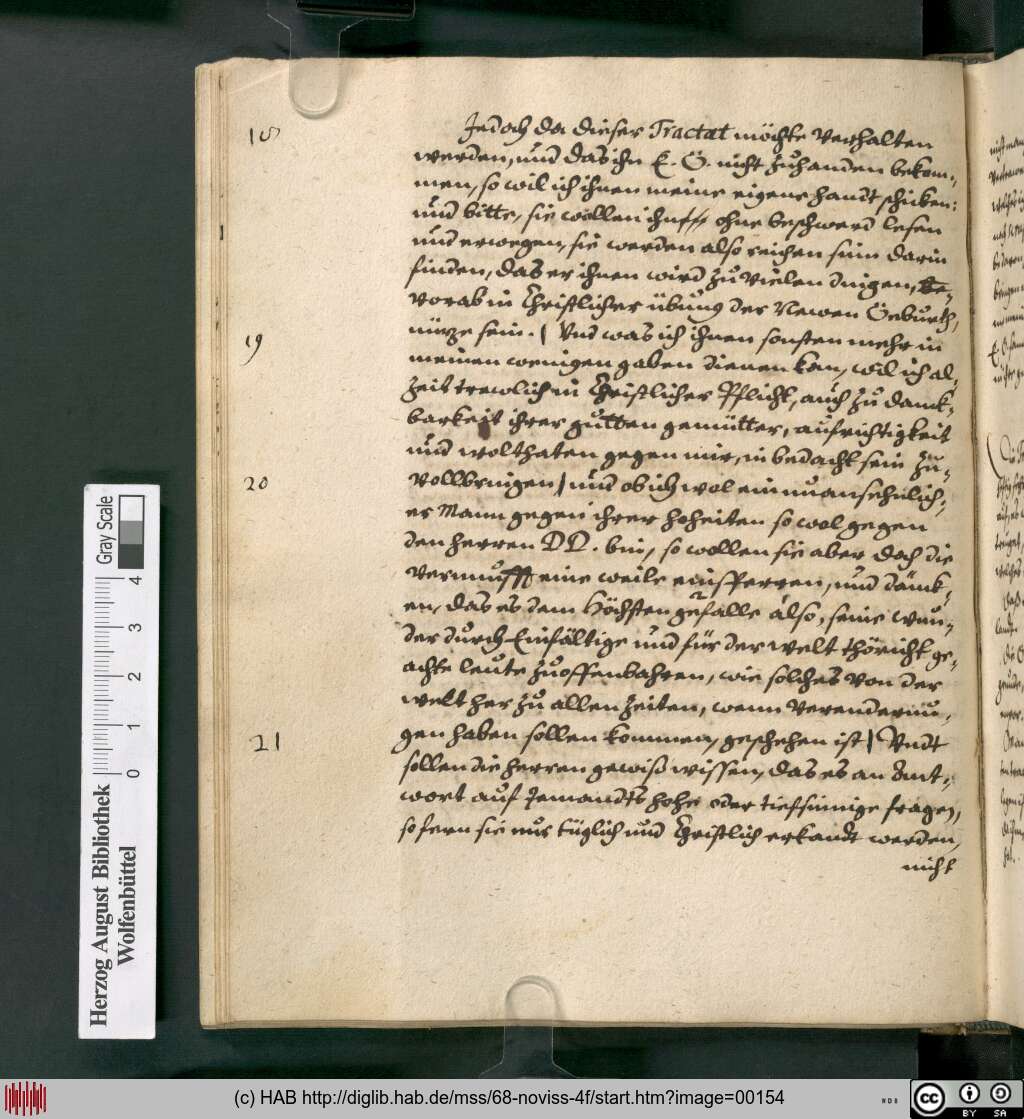 18
Jedoch da dieser Tractat möchte verhalten
werden, und das ihn E. G. nicht zuhanden bekom-
men, so wil ich ihnen meine eigene handt schicken:
und bitte, sie wollen ihn ohne beschwerd lesen
und erwegen, sie werden also reichen sinn darin
finden, das er ihnen wird zu vielen dingen, be-
vorab in Christlicher übung der Newen Geburth,
19
nütze sein. | Und was ich ihnen sonsten mehr in
meinen wenigen gaben dienen kan, wil ich al-
zeit trewlich in Christlicher Pflicht, auch zu danck-
barkeit ihrer gutten gemütter, aufrichtigkeit
und wolthaten gegen mir, in bedacht sein zu-
20
vollbringen | und ob ich wol ein unansehnlich-
er Mann gegen ihrer hoheiten so wol gegen
den herren DD. bin, so wollen sie aber doch die
vernunfft eine weile einsperren, und dänck-
en, das es dem Höchsten gefalle also, seine wun-
der durch Einfältige und für der welt thöricht ge-
achte leute zuoffenbahren, wie solches von der
welt her zu allen zeiten, wenn verenderun-
21
gen haben sollen kommen, geschehen ist | Undt
sollen die herren gewiß wissen, das es an Ant-
wort auf Jemandts hohe oder tiefsinnige fragen,
so fern sie nur tüglich und Christlich erkandt werden,
nicht
Gray Scale
0 1 2 3 4
Herzog August Bibliothek
Wolfenbüttel
(c) HAB http://diglib.hab.de/mss/68-noviss-4f/start.htm?image=00154
CC BY SA